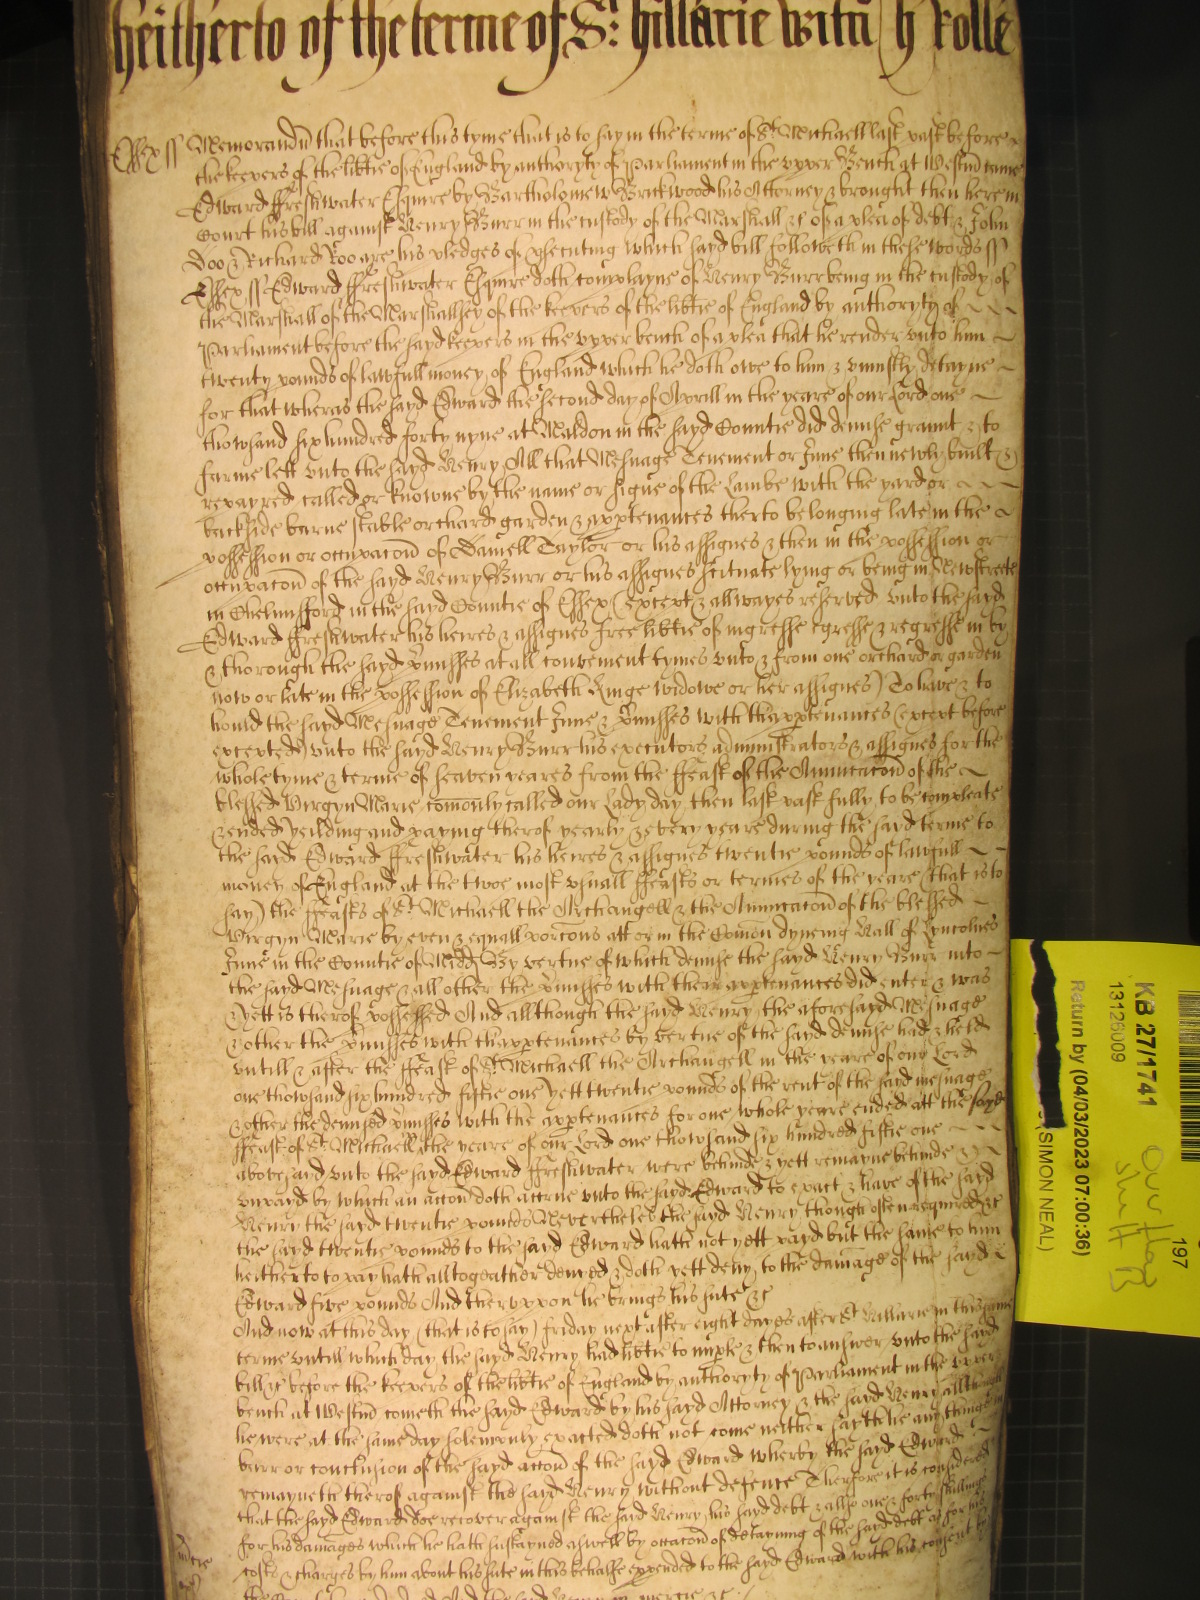 heitherto of the terme of St. hillarie witn h Rolle
Essex ss Memorandu that before this tyme that is to say in the terme of St Michaell last past before
the keepers of the libtie of England by authoryty of Parliament in the upper Bench at Westm came
Edward ffreshwater Esquire by Bartholomew Brickwood his Attorney & brought then here in
Court his bill against Henry Burr in the custody of the Marshall &c of a plea of debt & John
Doo & Richard Roo are his pledges of psecuting which sayd bill followeth in these words ss
Essex ss Edward ffreshwater Esquire doth complayne of Henry Burr being in the custody of
the Marshall of the Marshallsey of the keepers of the libtie of England by authoryty of
Parliament before the sayd keepers in the upper bench of a plea that he render unto him
twenty pounds of lawfull money of England which he doth owe to him & uniustly detayne
for that wheras the sayd Edward the second day of Aprill in the yeare of our Lord one
thowsand six hundred forty nyne at Maldon in the sayd Countie did demise graunt & to
farme lett unto the sayd Henry All that Mesuage Tenement or Inne then newly built &
repayred called or knowne by the name or signe of the Lambe with the yard or
backside barne stable orchard garden & apptenances therto belonging late in the
possession or occupacon of Daniell Taylor or his assignes & then in the possession or
occupacon of the sayd Henry Burr or his assignes scituate lying or being in Newstreete
in Chelmsford in the sayd Countie of Essex (except & allwayes reserved unto the sayd
Edward ffreshwater his heires & assignes free libtie of ingresse egresse & regresse in by
& thorough the sayd pmisses at all convenient tymes unto & from one orchard or garden
now or late in the possession of Elizabeth Kinge widowe or her assignes) To have & to
hould the sayd Mesuage Tenement Inne & pmisses with thapptenances (except before
excepted) unto the sayd Henry Burr his executors administrators & assignes for the
whole tyme & terme of seaven yeares from the ffeast of the Annuncacon of the
blessed Virgyn Marie comonly called our Lady day then last past fully to be compleate
& ended yeilding and paying therof yearly & every yeare during the sayd terme to
the sayd Edward ffreshwater his heires & assignes twentie pounds of lawfull
money of England at the twoe most usuall ffeasts or termes of the yeare (that is to
say) the ffeasts of St Michaell the Archangell & the Annuncacon of the blessed
Virgyn Marie by even & equall porcons att or in the Comon dyneing Hall of Lyncolnes
Inne in the Countie of Midd By vertue of which demise the sayd Henry Burr into
the sayd Mesuage & all other the pmisses with their apptenances did enter & was
& yett is therof possessed And allthough the sayd Henry the aforesayd Mesuage
& other the pmisses with thapptenances by vertue of the sayd demise had & held
untill & after the ffeast of St Michaell the Archangell in the yeare of our Lord
one thowsand six hundred fiftie one yett twentie pounds of the rent of the sayd mesuage
& other the demised pmisses with the apptenances for one whole yeare ended att the sayd
ffeast of St Michaell the yeare of our Lord one thowsand six hundred fiftie one
abovesayd unto the sayd Edward ffreshwater were behinde & yett remayne behinde &
unpayd by which an accon doth accrue unto the sayd Edward to exact & have of the sayd
Henry the sayd twentie pounds Nevertheles the sayd Henry though often required &c
the sayd twentie pounds to the sayd Edward hath not yett payd but the same to him
heitherto to pay hath alltogeather denyed & doth yett deny to the damage of the sayd
Edward five pounds And therupon he brings his sute &c
And now at this day (that is to say) Friday next after eight dayes after St Hillarie in this same
terme untill which day the sayd Henry had libtie to imple & then to answer unto the sayd
bill &c before the keepers of the libtie of England by authoryty of Parliament in the upper
bench at Westm cometh the sayd Edward by his sayd Attorney & the sayd Henry allthough
he were at the same day solemnly exacted doth not come neither sayth he any thinge in
barr or conclusion of the sayd accon of the sayd Edward wherby the sayd Edward
remayneth therof against the sayd Henry without defence Therfore it is considered
that the sayd Edward doe recover against the sayd Henry his sayd debt & allso one & forty shillings
for his damages which he hath sustayned aswell by occacon of detayning of the sayd debt as for his
costs & charges by him about his sute in this behalfe expended to the sayd Edward with his consent
And the sayd Henry in mercie &c
Mcie
KB 27/1741
13126009
Return by (04/03/2023 07:00:36)
(SIMON NEAL)
197